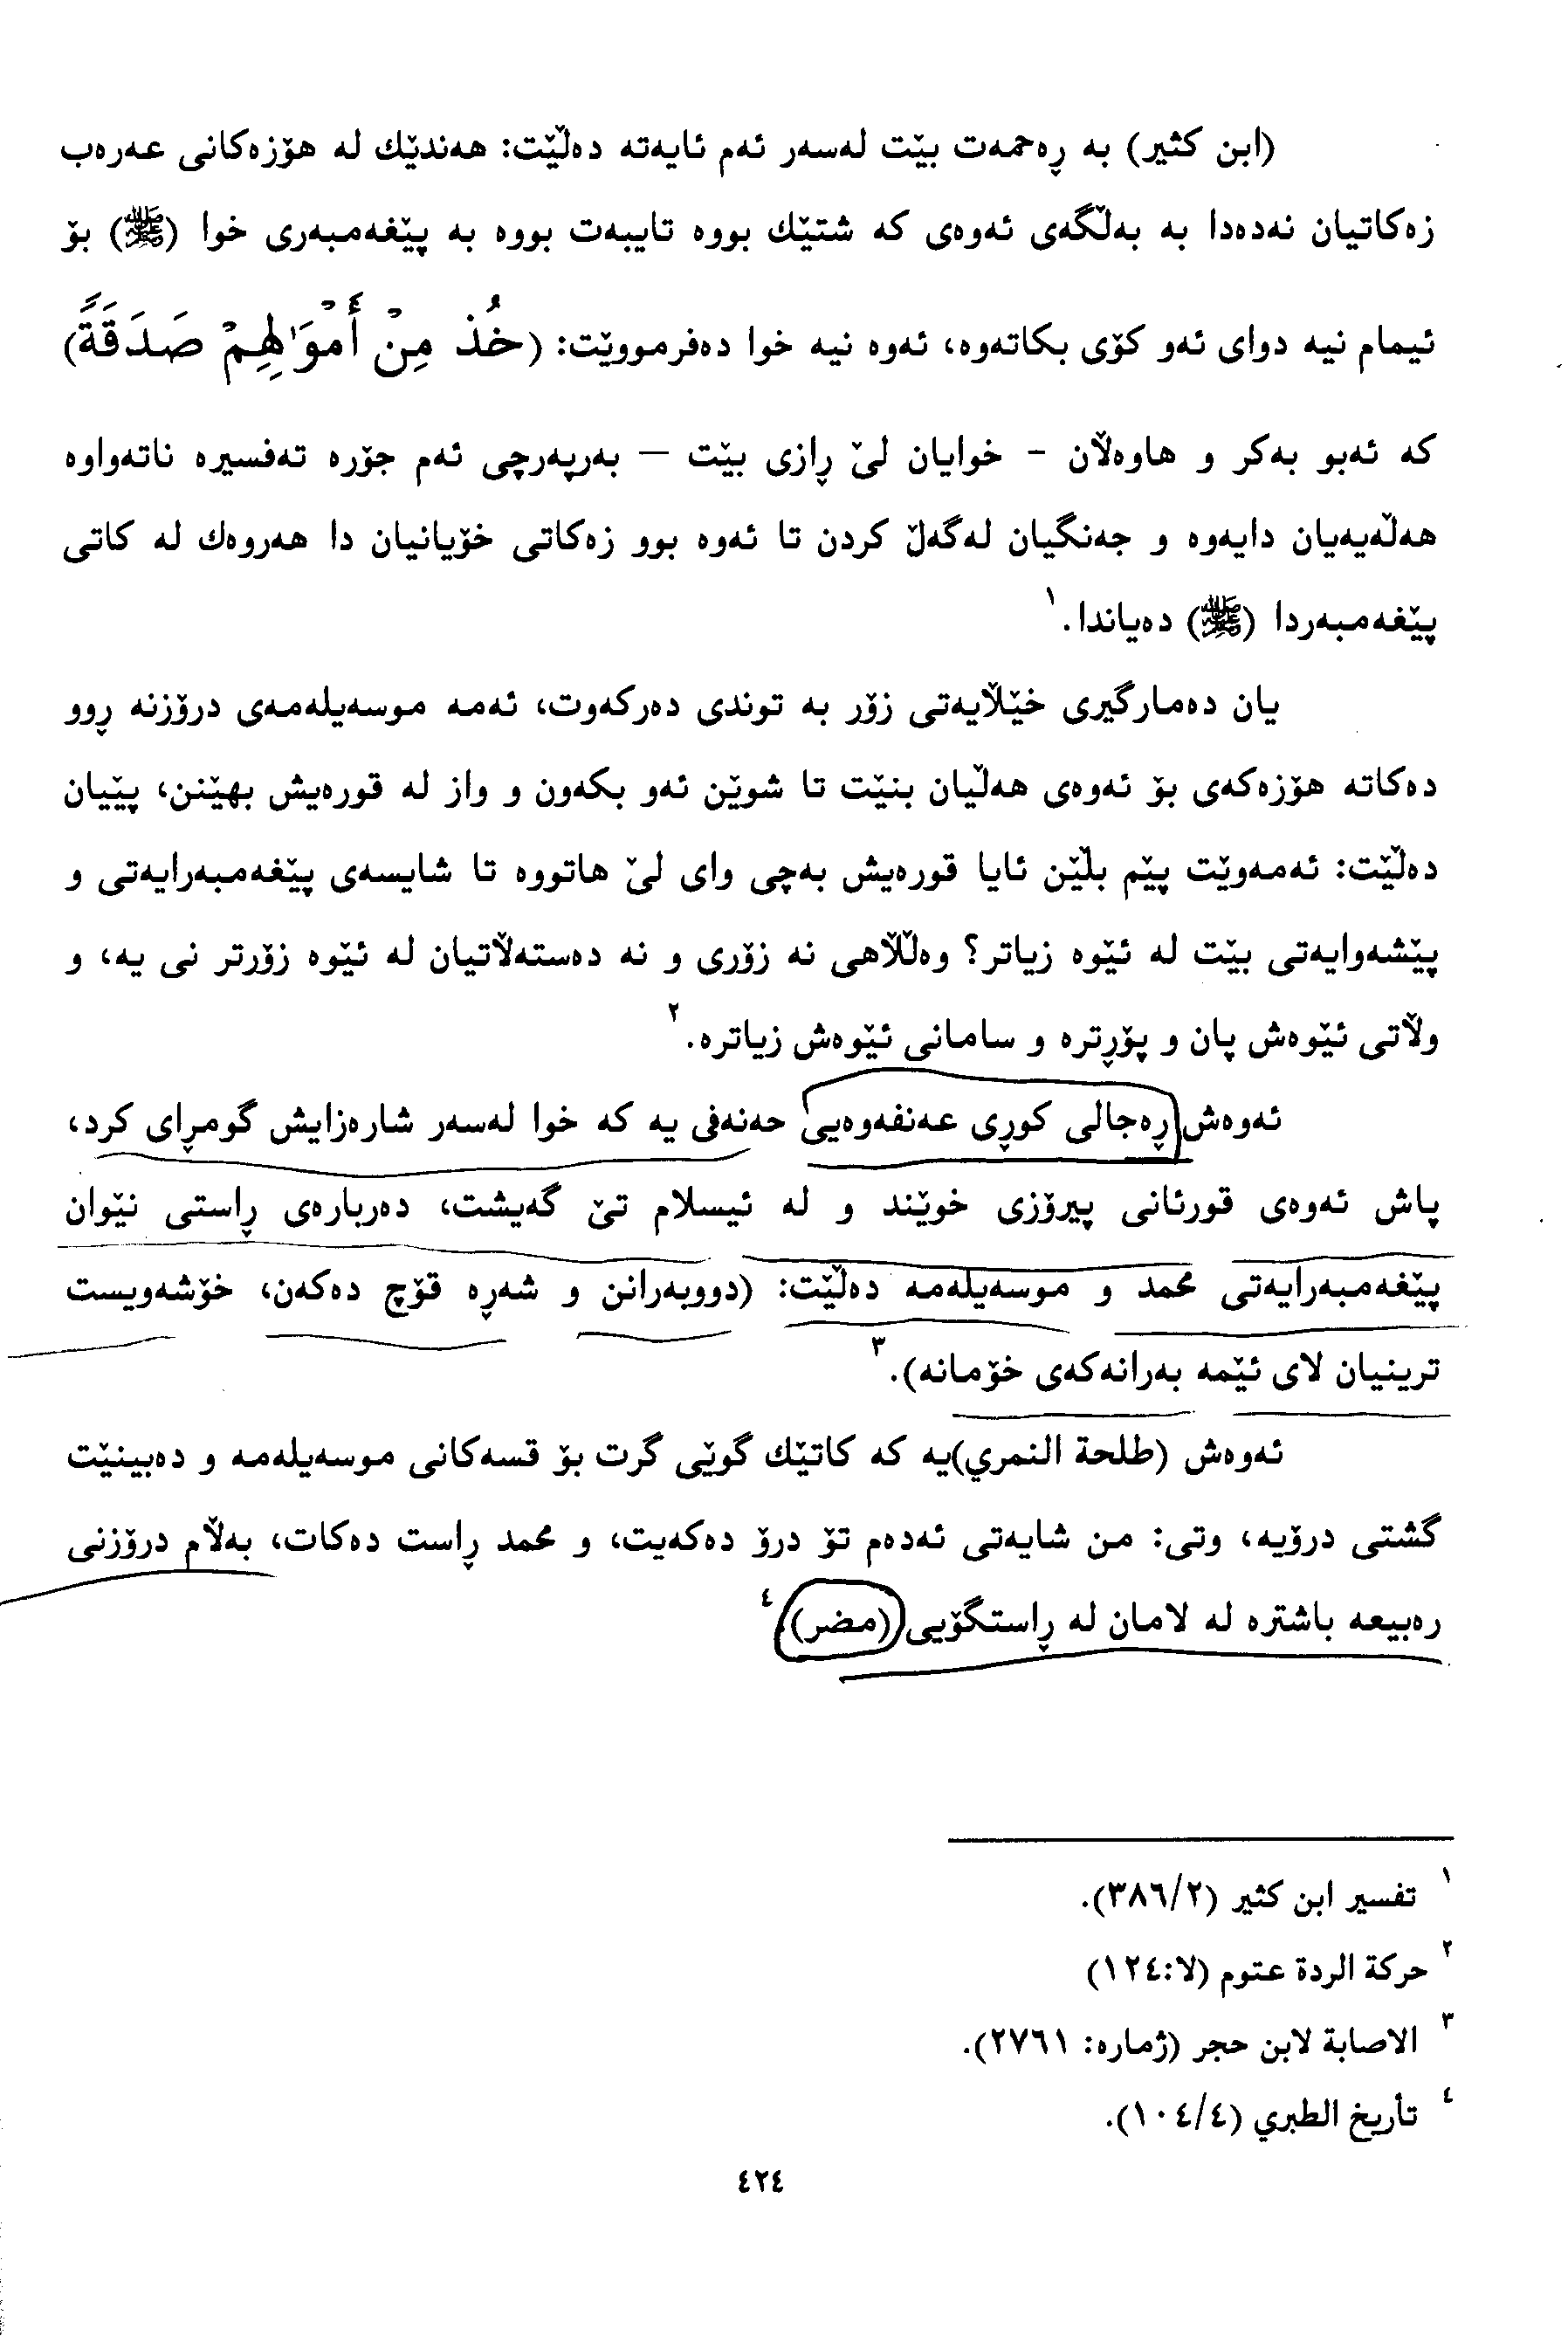 (ابن كثير) به ڕه‌حمه‌ت بێت له‌سه‌ر ئه‌م ئایه‌ته ده‌ڵێت: هه‌ندێك له هۆزه‌كانی عه‌ره‌ب
زه‌كاتیان نه‌ده‌دا به به‌ڵگه‌ی ئه‌وه‌ی كه شتێك بووه تایبه‌ت بووه به پێغه‌مبه‌ری خوا (ﷺ) بۆ
ئیمام نیه دوای ئه‌و كۆی بكاته‌وه، ئه‌وه نیه خوا ده‌فرموویێت: (خُذْ مِنْ أَمْوَٰلِهِمْ صَدَقَةً)
كه ئه‌بو به‌كر و هاوه‌ڵان - خوایان لێ ڕازی بێت – به‌رپه‌رچی ئه‌م جۆره ته‌فسیره ناته‌واوه
هه‌ڵه‌یه‌یان دایه‌وه و جه‌نگیان له‌گه‌ڵ كردن تا ئه‌وه بوو زه‌كاتی خۆیانیان دا هه‌روه‌ك له كاتی
پێغه‌مبه‌ردا (ﷺ) ده‌یاندا.١
یان ده‌مارگیری خێڵایه‌تی زۆر به توندی ده‌ركه‌وت، ئه‌مه موسه‌یله‌مه‌ی درۆزنه ڕوو
ده‌كاته هۆزه‌كه‌ی بۆ ئه‌وه‌ی هه‌ڵیان بنێت تا شوێن ئه‌و بكه‌ون و واز له قوره‌یش بهێنن، پێیان
ده‌ڵێت: ئه‌مه‌وێت پێم بڵێن ئایا قوره‌یش به‌چی وای لێ هاتووه تا شایسه‌ی پێغه‌مبه‌رایه‌تی و
پێشه‌وایه‌تی بێت له ئێوه زیاتر؟ وه‌ڵڵاهی نه زۆری و نه ده‌سته‌ڵاتیان له ئێوه زۆرتر نی یه، و
وڵاتی ئێوه‌ش پان و پۆڕتره و سامانی ئێوه‌ش زیاتره.٢
ئه‌وه‌ش ڕه‌جالی كوڕی عه‌نفه‌وه‌یی حه‌نه‌فی یه كه خوا له‌سه‌ر شاره‌زایش گومڕای كرد،
پاش ئه‌وه‌ی قورئانی پیرۆزی خوێند و له ئیسلام تێ گه‌یشت، ده‌رباره‌ی ڕاستی نێوان
پێغه‌مبه‌رایه‌تی محمد و موسه‌یله‌مه ده‌ڵێت: (دووبه‌رانن و شه‌ڕه قۆچ ده‌كه‌ن، خۆشه‌ویست
ترینیان لای ئێمه به‌رانه‌كه‌ی خۆمانه).٣
ئه‌وه‌ش (طلحة النمري)یه كه كاتێك گوێی گرت بۆ قسه‌كانی موسه‌یله‌مه و ده‌بینێت
گشتی درۆیه، وتی: من شایه‌تی ئه‌ده‌م تۆ درۆ ده‌كه‌یت، و محمد ڕاست ده‌كات، به‌ڵام درۆزنی
ره‌بیعه باشتره له لامان له ڕاستگۆیی (مضر).٤
١ تفسير ابن كثير (٣٨٦/٢).
٢ حركة الردة عتوم (لا:١٢٤)
٣ الاصابة لابن حجر (ژماره: ٢٧٦١).
٤ تأريخ الطبري (١٠٤/٤).
٤٢٤